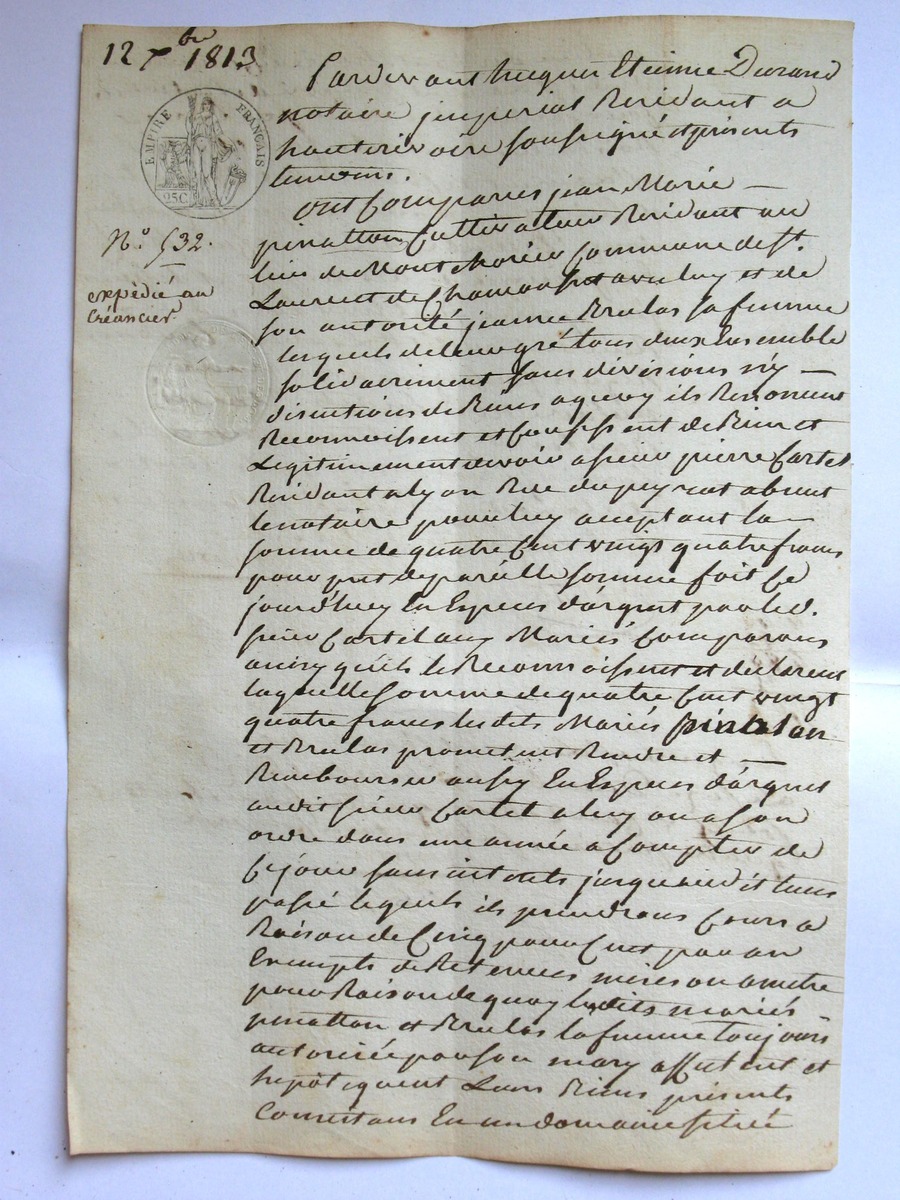 12 Xbre 1813
EMPIRE FRANÇAIS
25C
N° 532.
expédié au
créancier
Pardevant hugues Etienne Durand
notaire jmperial Residant a
hauterivoire soussigné et présents
temoins.
Ont Comparus jean Marie —
pinatton Cultivateur Residant au
lieu de Mont Commune de St.
Laurent de Chamousset avec luy et de
son autorité jeanne Brulas sa femme
lesquels de leur gré tous deux Ensemble
solidairement sans divisions n'y —
discutions de Biens a quoy ils Renoncent
Reconnoissent et Confessent de Bien et
Legitimement devoir a sieur pierre Cartet
Residant a lyon Rue du peyrat absent
le notaire pour luy acceptant la —
somme de quatre Cent vingt quatre francs
pour pret de pareille somme fait Ce
jourd'huy En Especes d'argent par led.
sieur Cartet aux Mariés Comparants
ainsy qu'ils le Reconnoissent et declarent
laquelle somme de quatre Cent vingt
quatre francs les dits Mariés pinatton
et Brulas promettent Rendre et —
Rembourser aussy En Especes d'argent
audit sieur Cartet a luy ou a son
ordre dans une année a Compter de
Ce jour sans interets jusqu'audit tems
passé lequels ils prendront Cours a
Raison de Cinq pour Cent par an
Exempts de Retenues mises ou a mettre
pour Raison de quoy lesdits mariés
pinatton et Brulas la femme toujours
autorisée par son mary affectent et
hipotequent Leurs Biens présents
Consistans En un domaine situé